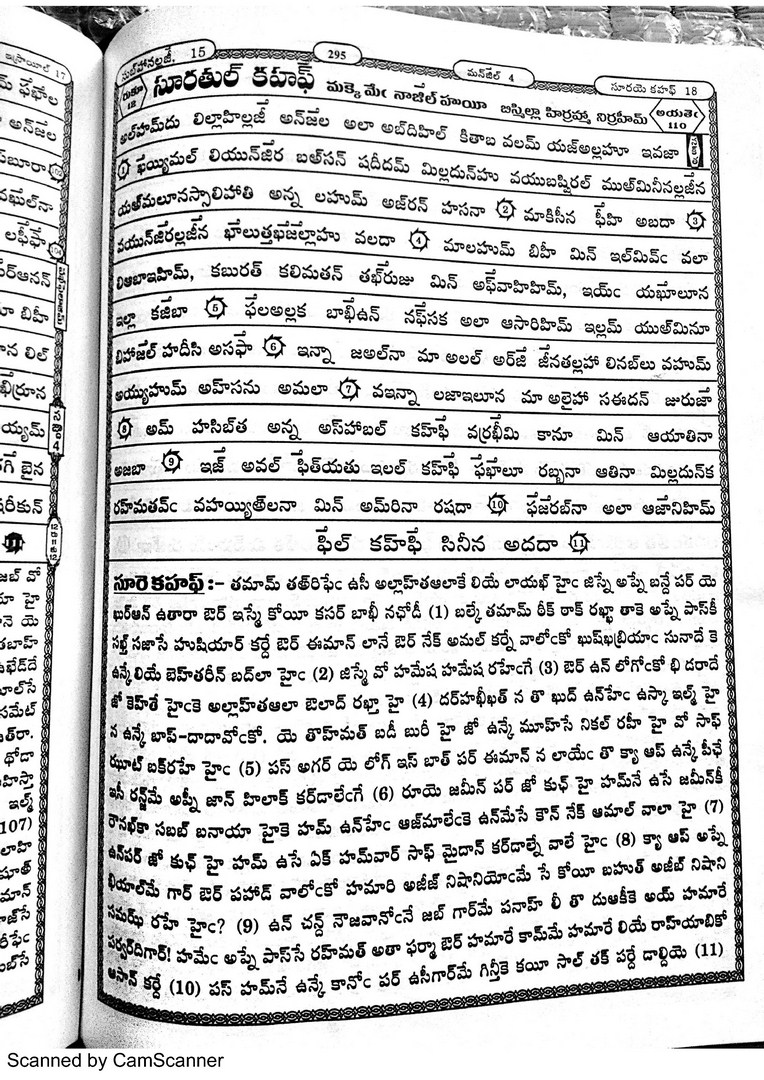 సుబ్‌హానల్లజీ. 15
295
మన్‌జిల్ 4
సూరయె కహఫ్ 18
రుకూ 12
సూరతుల్ కహఫ్ మక్కె మేఁ నాౙిల్ హుయీ బిస్మిల్లా హిర్రహ్మా నిర్రహీమ్
ఆయతెఁ 110
అల్‌హమ్‌దు లిల్లాహిల్లౙీ అన్‌ౙల అలా అబ్‌దిహిల్ కితాబ వలమ్ యజ్‌అల్లహూ ఇవజా
1 ఖయ్యిమల్ లియున్‌ౙిర బఅ్‌సన్ షదీదమ్ మిల్లదున్‌హు వయుబష్షిరల్ ముఅ్‌మినీనల్లౙీన
యఅ్‌మలూనస్సాలిహాతి అన్న లహుమ్ అజ్‌రన్ హసనా 2 మాకిసీన ఫీహి అబదా 3
వయున్‌ౙిరల్లౙీన ఖాలుత్తఖౙల్లాహు వలదా 4 మాలహుమ్ బిహీ మిన్ ఇల్‌మివ్ఁ వలా
లిఆబాఇహిమ్, కబురత్ కలిమతన్ తఖ్‌రుజు మిన్ అఫ్‌వాహిహిమ్, ఇయ్ఁ యఖూలూన
ఇల్లా కౙిబా 5 ఫలఅల్లక బాఖిఉన్ నఫ్‌సక అలా ఆసారిహిమ్ ఇల్లమ్ యుఅ్‌మినూ
బిహాౙల్ హదీసి అసఫా 6 ఇన్నా జఅల్‌నా మా అలల్ అర్‌జి ౙీనతల్లహా లినబ్‌లు వహుమ్
అయ్యుహుమ్ అహ్‌సను అమలా 7 వఇన్నా లజాఇలూన మా అలైహా సఈదన్ జురుౙా
8 అమ్ హసిబ్‌త అన్న అస్‌హాబల్ కహ్‌ఫి వర్రఖీమి కానూ మిన్ ఆయాతినా
అజబా 9 ఇౙ్ అవల్ ఫిత్‌యతు ఇలల్ కహ్‌ఫి ఫఖాలూ రబ్బనా ఆతినా మిల్లదున్‌క
రహ్‌మతవ్ఁ వహయ్యిఅ్‌లనా మిన్ అమ్‌రినా రషదా 10 ఫౙరబ్‌నా అలా ఆౙానిహిమ్
ఫిల్ కహ్‌ఫి సినీన అదదా 11
సూరె కహఫ్ :- తమామ్ తఅ్‌రిఫేఁ ఉసీ అల్లాహ్‌తఆలాకే లియే లాయఖ్ హైఁ జిస్నే అప్నే బన్దే పర్ యె
ఖుర్‌ఆన్ ఉతారా ఔర్ ఇస్మే కోయీ కసర్ బాఖీ నఛోడీ (1) బల్కే తమామ్ ఠీక్ ఠాక్ రఖ్ఖా తాకె అప్నే పాస్‌కీ
సఖ్త్ సజాసే హుషియార్ కర్దే ఔర్ ఈమాన్ లానే ఔర్ నేక్ అమల్ కర్నే వాలోఁకో ఖుష్‌ఖబ్రియాఁ సునాదే కె
ఉన్కే లియే బెహ్‌తరీన్ బద్‌లా హైఁ (2) జిస్మే వో హమేష హమేష రహేఁగే (3) ఔర్ ఉన్ లోగోఁకో భి దరాదే
జో కెహ్‌తే హైఁకె అల్లాహ్‌తఆలా ఔలాద్ రఖ్తా హై (4) దర్‌హఖీఖత్ న తొ ఖుద్ ఉన్‌హేఁ ఉస్కా ఇల్మ్ హై
న ఉన్కే బాప్-దాదావోఁకో. యె తొహ్‌మత్ బడీ బురీ హై జో ఉన్కే మూహ్‌సే నికల్ రహీ హై వో సాఫ్
ఝూట్ బక్‌రహే హైఁ (5) పస్ అగర్ యె లోగ్ ఇస్ బాత్ పర్ ఈమాన్ న లాయేఁ తొ క్యా ఆప్ ఉన్కే పీఛే
ఇసీ రన్జ్‌మే అప్నీ జాన్ హిలాక్ కర్‌డాలేఁగే (6) రూయె జమీన్ పర్ జో కుఛ్ హై హమ్‌నే ఉసే జమీన్‌కీ
రౌనఖ్‌కా సబబ్ బనాయా హైకె హమ్ ఉన్‌హేఁ ఆజ్‌మాలేఁకె ఉన్‌మేసే కౌన్ నేక్ ఆమాల్ వాలా హై (7)
ఉన్‌పర్ జో కుఛ్ హై హమ్ ఉసే ఏక్ హమ్‌వార్ సాఫ్ మైదాన్ కర్‌డాల్నే వాలే హైఁ (8) క్యా ఆప్ అప్నే
ఖియాల్‌మే గార్ ఔర్ పహాడ్ వాలోఁకో హమారి అజీబ్ నిషానియోఁమే సే కోయీ బహుత్ అజీబ్ నిషాని
సమఝ్ రహే హైఁ? (9) ఉన్ చన్ద్ నౌజవానోఁనే జబ్ గార్‌మే పనాహ్ లీ తొ దుఆకీకె అయ్ హమారే
పర్వర్‌దిగార్! హమేఁ అప్నే పాస్‌సే రహ్‌మత్ అతా ఫర్మా ఔర్ హమారే కామ్‌మే హమారే లియే రాహ్‌యాబికో
ఆసాన్ కర్దే (10) పస్ హమ్‌నే ఉన్కే కానోఁ పర్ ఉసీగార్‌మే గిన్తీకె కయీ సాల్ తక్ పర్దే డాల్దియె (11)
Scanned by CamScanner